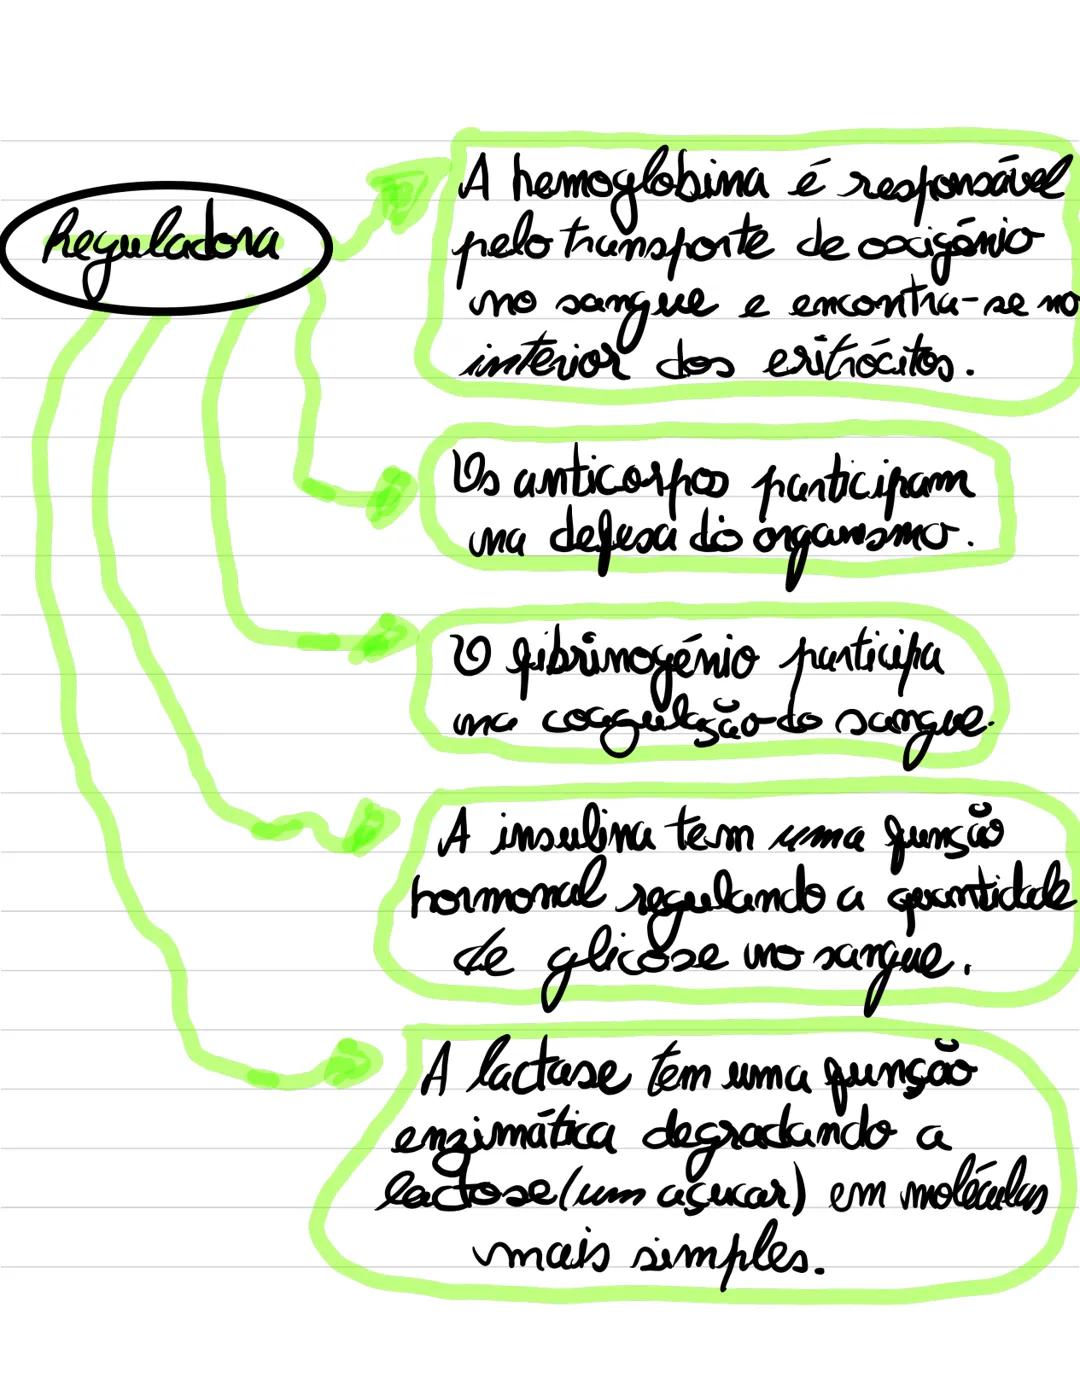 Reguladora
A hemoglobina é responsável
pelo transporte de oxigénio
no sangue e encontra-se no
interior dos eritrócitos.
Os anticorpos participam
na defesa do organismo.
O fibrinogénio participa
na coagulação do sangue.
A insulina tem uma função
hormonal regulando a quantidade
de glicose no sangue.
A lactase tem uma função
enzimática degradando a
lactose (um açucar) em moléculas
mais simples.